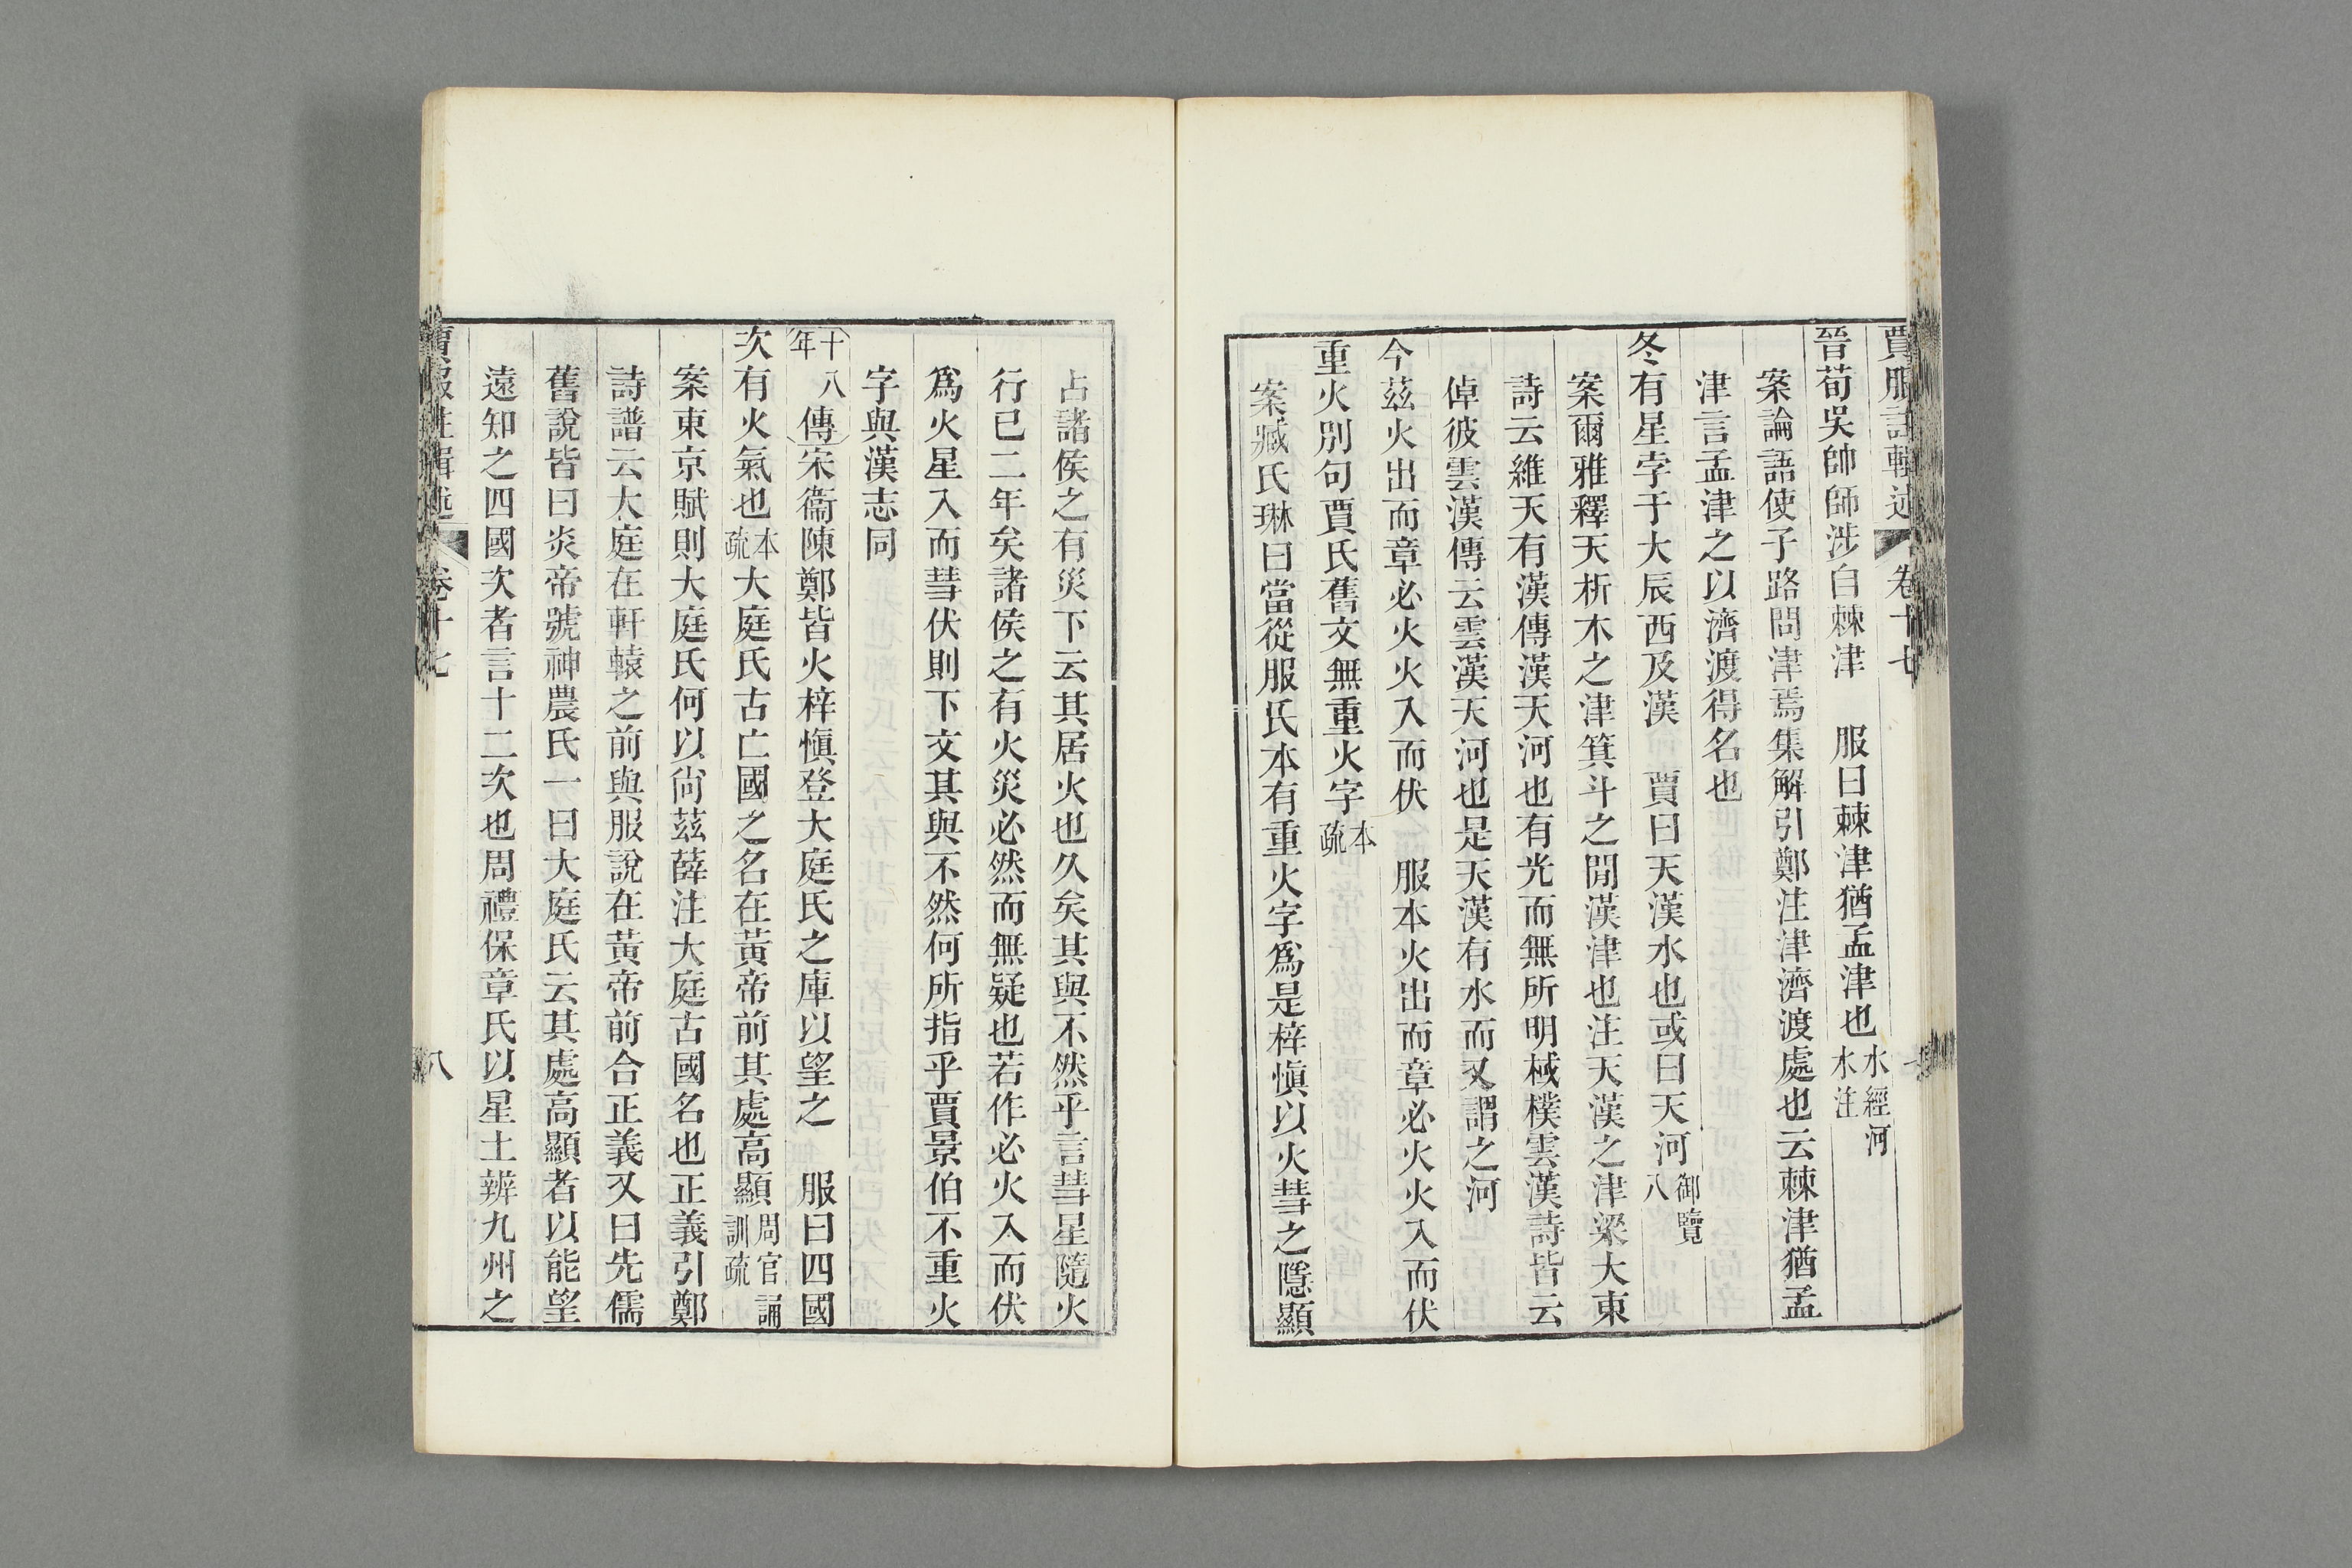 賈服註輯述 卷十七
晉荀吳帥師涉自棘津 服曰棘津猶孟津也水經河水注
案論語使子路問津焉集解引鄭注津濟渡處也云棘津猶孟
津言孟津之以濟渡得名也
冬有星孛于大辰西及漢 賈曰天漢水也或曰天河御覽八
案爾雅釋天析木之津箕斗之閒漢津也注天漢之津梁大東
詩云維天有漢傳漢天河也有光而無所明棫樸雲漢詩皆云
倬彼雲漢傳云雲漢天河也是天漢有水而又謂之河
今茲火出而章必火火入而伏 服本火出而章必火火入而伏
重火別句賈氏舊文無重火字本疏
案臧氏琳曰當從服氏本有重火字爲是梓愼以火彗之隱顯
占諸侯之有災下云其居火也久矣其與不然乎言彗星隨火
行已二年矣諸侯之有火災必然而無疑也若作必火入而伏
爲火星入而彗伏則下文其與不然何所指乎賈景伯不重火
字與漢志同
十八年傳宋衞陳鄭皆火梓愼登大庭氏之庫以望之 服曰四國
次有火氣也本疏大庭氏古亡國之名在黃帝前其處高顯周官誦訓疏
案東京賦則大庭氏何以尙茲薛注大庭古國名也正義引鄭
詩譜云大庭在軒轅之前與服說在黃帝前合正義又曰先儒
舊說皆曰炎帝號神農氏一曰大庭氏云其處高顯者以能望
遠知之四國次者言十二次也周禮保章氏以星土辨九州之
卷十七 八